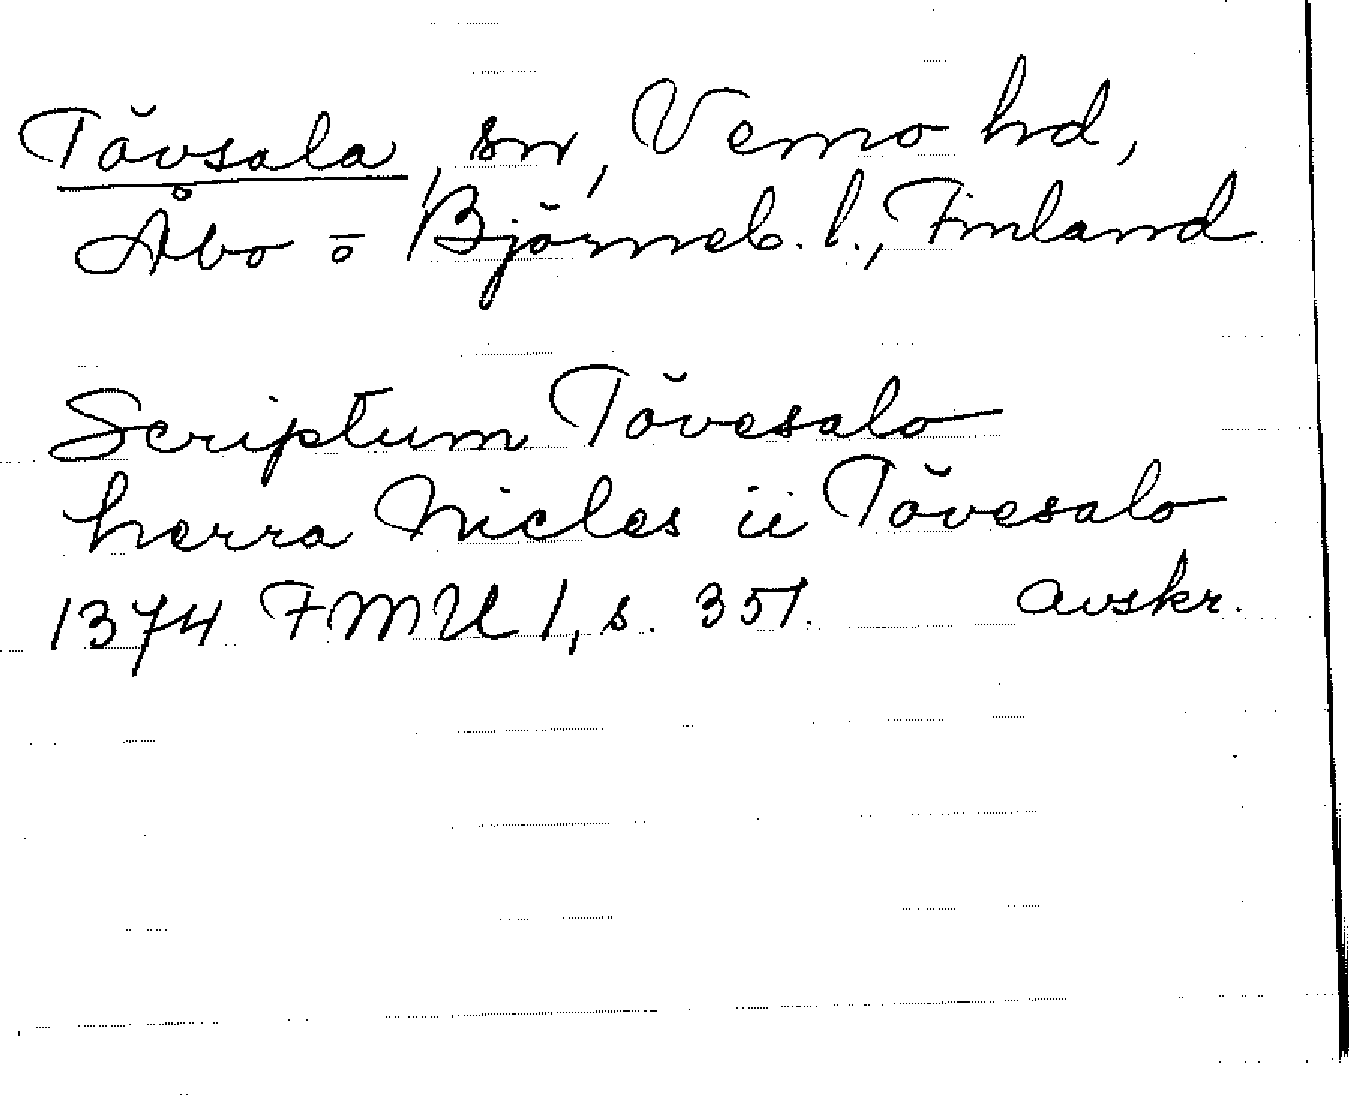 Tövsala, sn, Vemo hd,
Åbo o Björneb. l., Finland
Scriptum Tövesalo
herra Nicles ii Tövesalo
1374 FMU 1, s. 351. avskr.